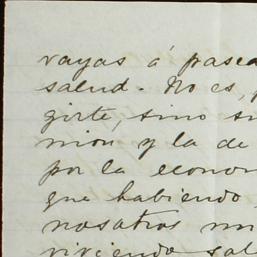 vayas á pasea
salud. No es,
girte, sino su
nion y la de
por la econom
que habiendo
nosotros mu
viviendo sol